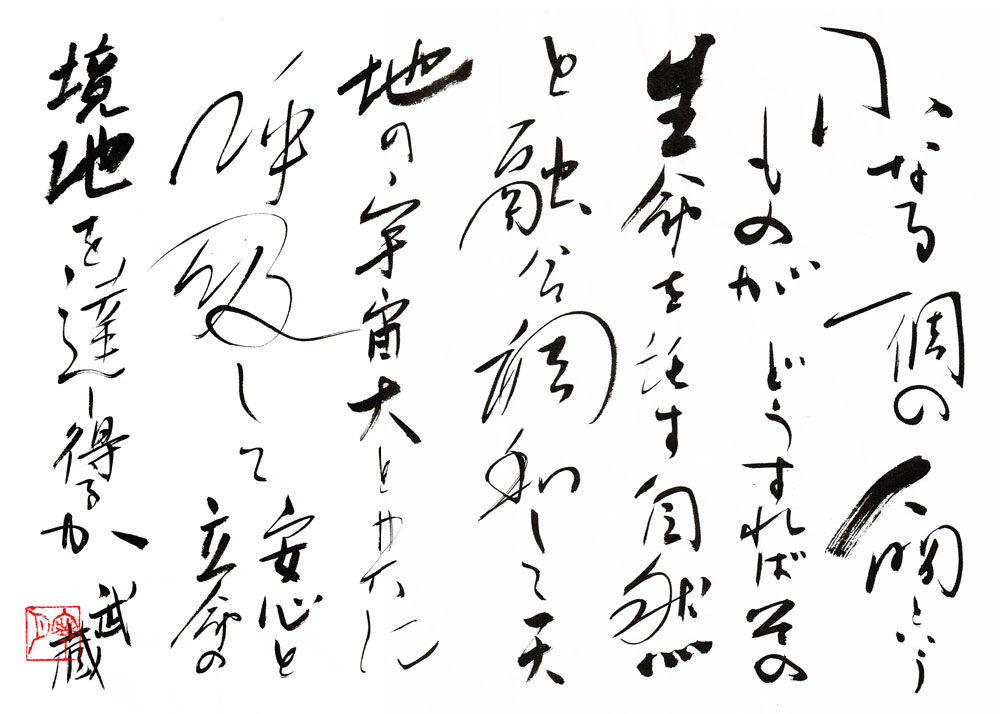 小いなる一個の人間という
ものがどうすれば其の
生命を託す自然
と融合調和して天
地の宇宙大とゆ大に
呼吸して安心と
立命の
境地を達し得るか
武蔵